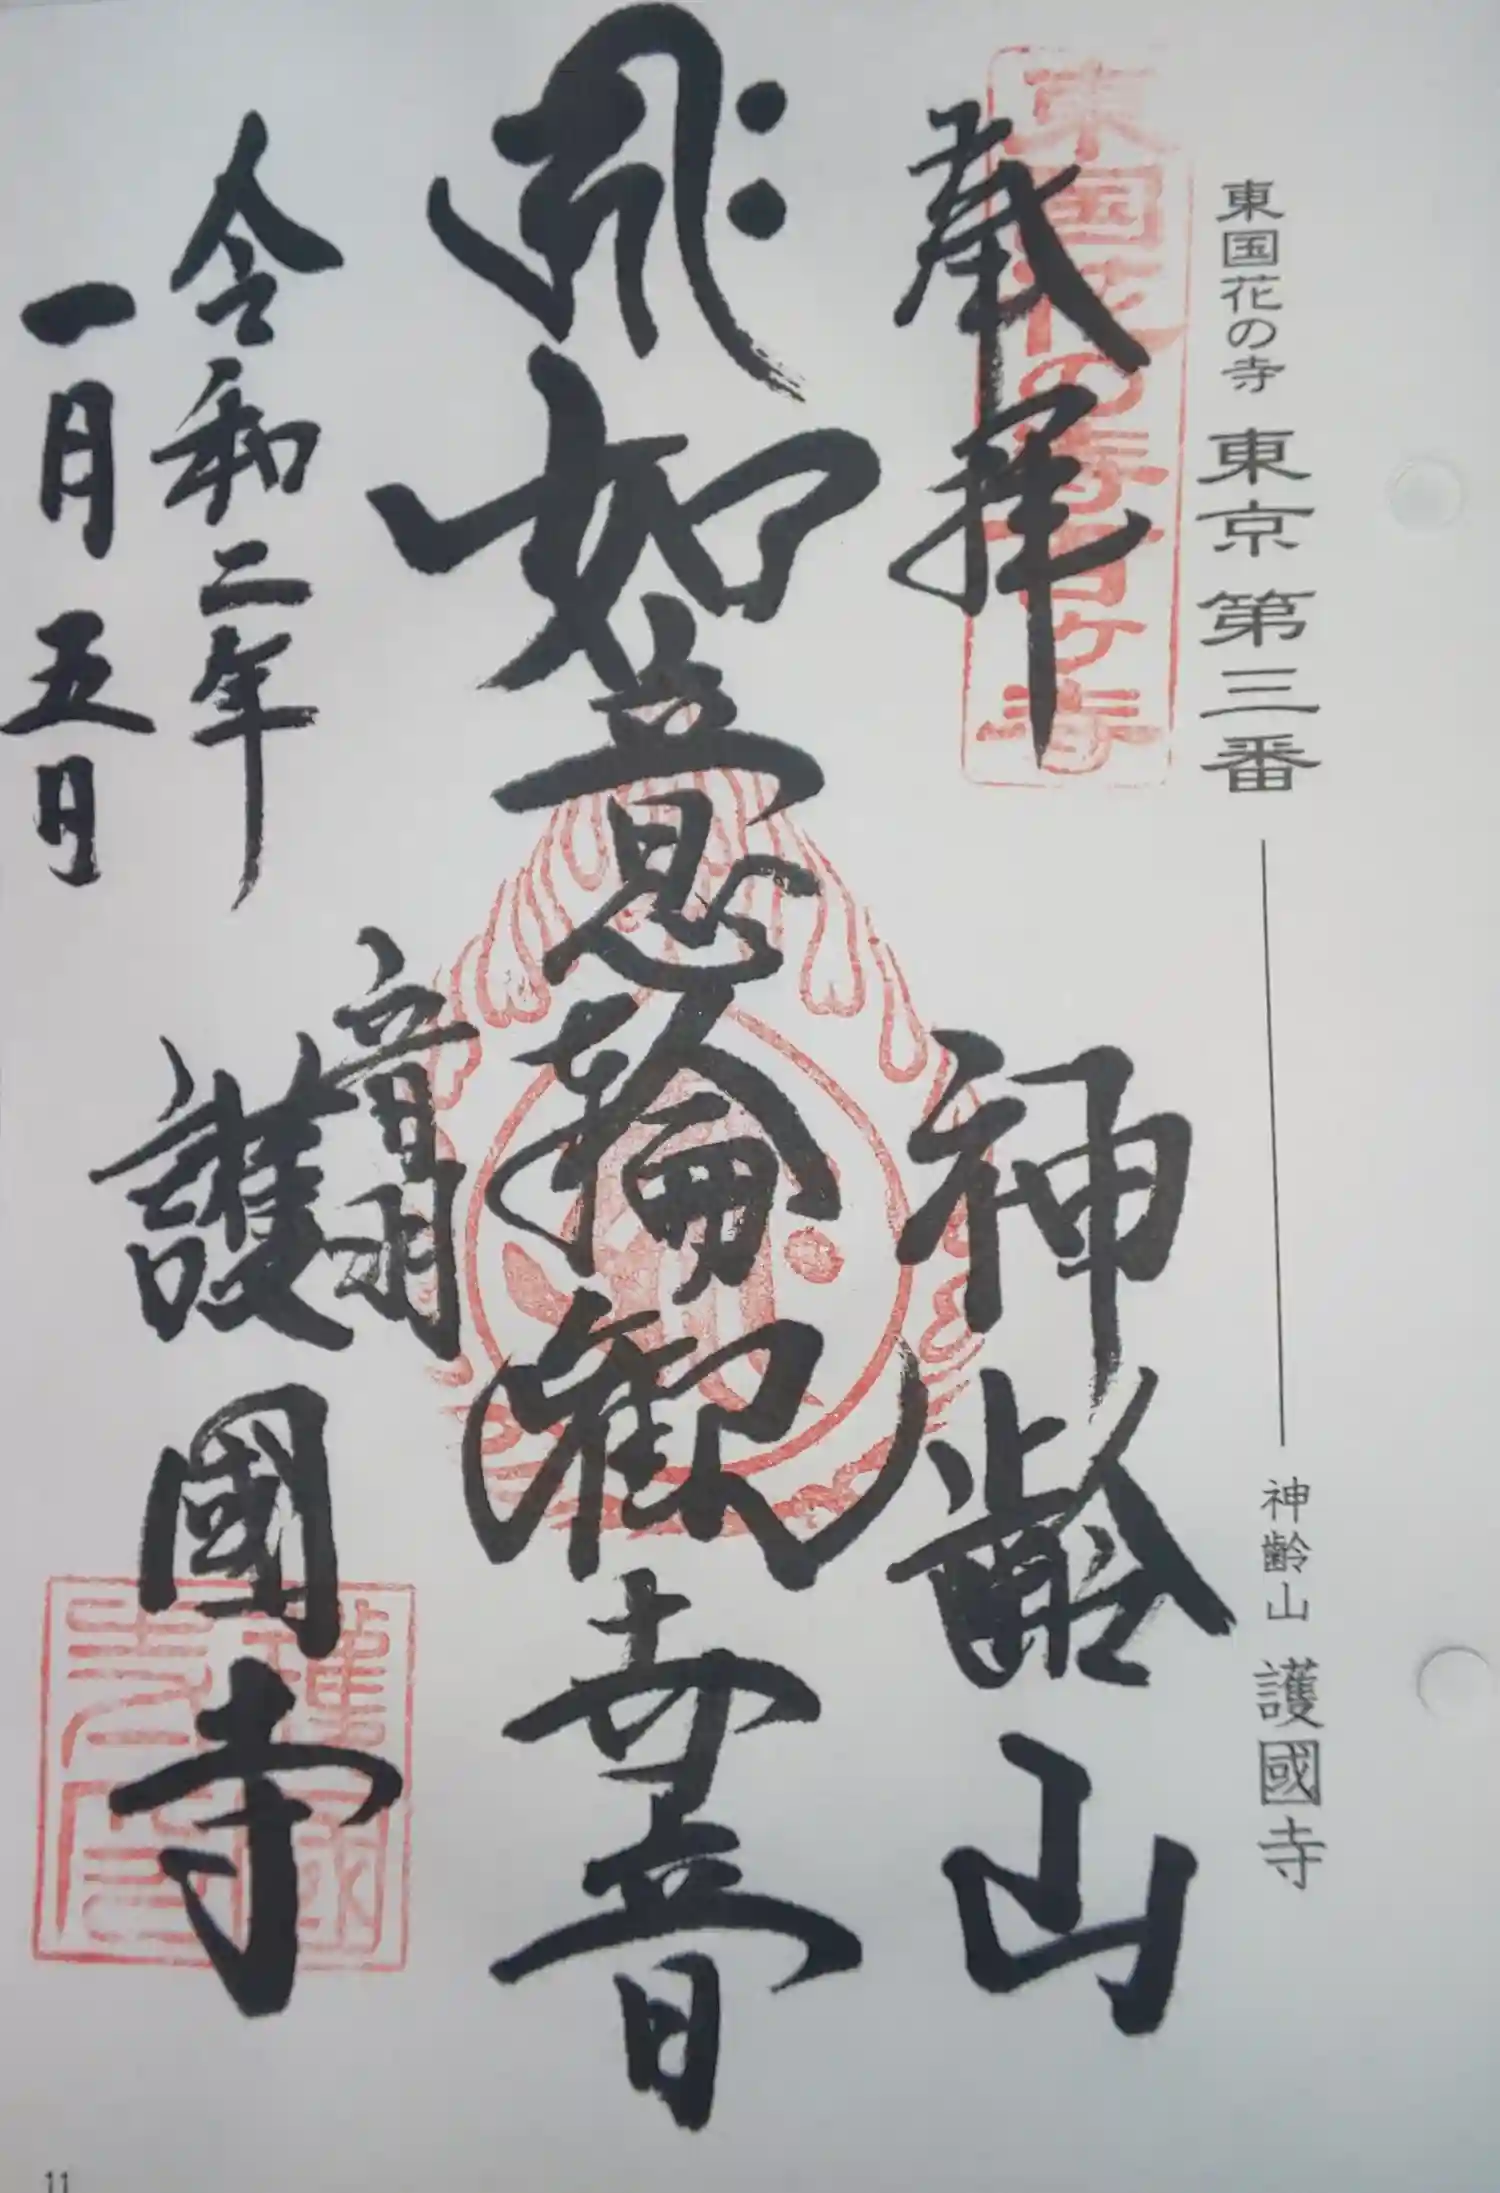 東国花の寺 東京 第三番 神齢山 護國寺
東国花の寺百ヶ寺
奉拝
神齢山
如意輪観世音
音羽
護國寺
令和二年
一月五日
11